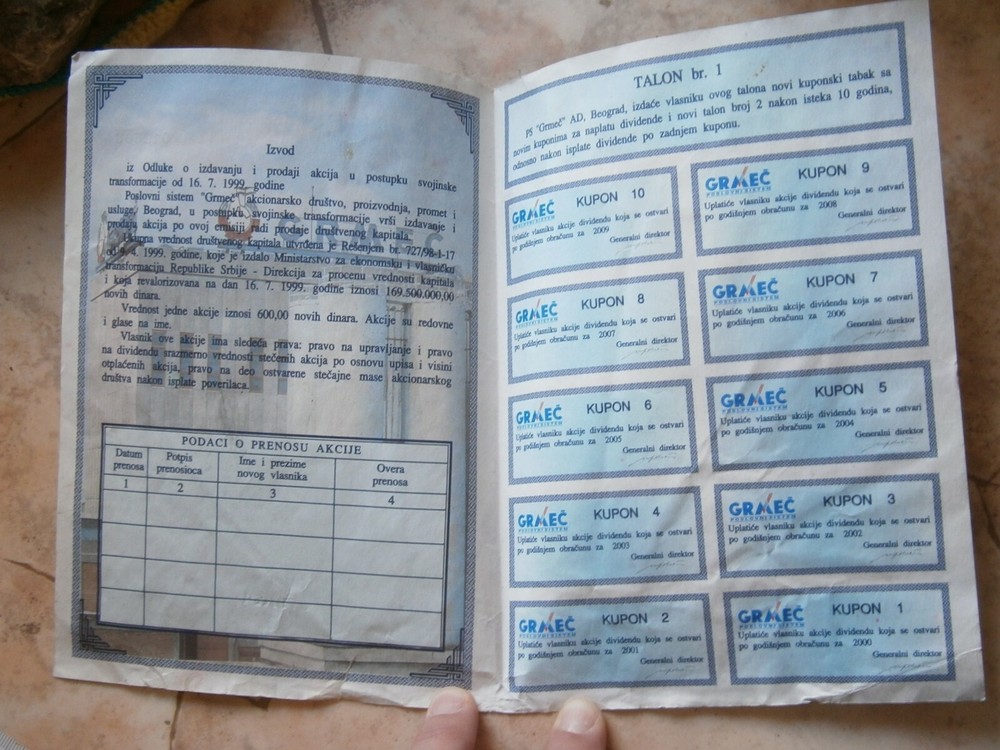 Izvod
iz Odluke o izdavanju i prodaji akcija u postupku svojinske
transformacije od 16. 7. 1999. godine
Poslovni sistem "Grmeč" akcionarsko društvo, proizvodnja, promet i
usluge, Beograd, u postupku svojinske transformacije vrši izdavanje i
prodaju akcija po ovoj emisiji radi prodaje društvenog kapitala.
Ukupna vrednost društvenog kapitala utvrđena je Rešenjem br. 727/98-1-17
od 9. 4. 1999. godine, koje je izdalo Ministarstvo za ekonomsku i vlasničku
transformaciju Republike Srbije - Direkcija za procenu vrednosti kapitala
i koja revalorizovana na dan 16. 7. 1999. godine iznosi 169.500.000,00
novih dinara.
Vrednost jedne akcije iznosi 600,00 novih dinara. Akcije su redovne
i glase na ime.
Vlasnik ove akcije ima sledeća prava: pravo na upravljanje i pravo
na dividendu srazmerno vrednosti stečenih akcija po osnovu upisa i visini
otplaćenih akcija, pravo na deo ostvarene stečajne mase akcionarskog
društva nakon isplate poverilaca.
PODACI O PRENOSU AKCIJE
Datum prenosa
Potpis prenosioca
Ime i prezime novog vlasnika
Overa prenosa
1 2 3 4
TALON br. 1
PS "Grmeč" AD, Beograd, izdaće vlasniku ovog talona novi kuponski tabak sa
novim kuponima za naplatu dividende i novi talon broj 2 nakon isteka 10 godina,
odnosno nakon isplate dividende po zadnjem kuponu.
GRMEČ KUPON 10
POSLOVNI SISTEM
Uplatiće vlasniku akcije dividendu koja se ostvari
po godišnjem obračunu za 2009
Generalni direktor
GRMEČ KUPON 9
POSLOVNI SISTEM
Uplatiće vlasniku akcije dividendu koja se ostvari
po godišnjem obračunu za 2008
Generalni direktor
GRMEČ KUPON 8
POSLOVNI SISTEM
Uplatiće vlasniku akcije dividendu koja se ostvari
po godišnjem obračunu za 2007
Generalni direktor
GRMEČ KUPON 7
POSLOVNI SISTEM
Uplatiće vlasniku akcije dividendu koja se ostvari
po godišnjem obračunu za 2006
Generalni direktor
GRMEČ KUPON 6
POSLOVNI SISTEM
Uplatiće vlasniku akcije dividendu koja se ostvari
po godišnjem obračunu za 2005
Generalni direktor
GRMEČ KUPON 5
POSLOVNI SISTEM
Uplatiće vlasniku akcije dividendu koja se ostvari
po godišnjem obračunu za 2004
Generalni direktor
GRMEČ KUPON 4
POSLOVNI SISTEM
Uplatiće vlasniku akcije dividendu koja se ostvari
po godišnjem obračunu za 2003
Generalni direktor
GRMEČ KUPON 3
POSLOVNI SISTEM
Uplatiće vlasniku akcije dividendu koja se ostvari
po godišnjem obračunu za 2002
Generalni direktor
GRMEČ KUPON 2
POSLOVNI SISTEM
Uplatiće vlasniku akcije dividendu koja se ostvari
po godišnjem obračunu za 2001
Generalni direktor
GRMEČ KUPON 1
POSLOVNI SISTEM
Uplatiće vlasniku akcije dividendu koja se ostvari
po godišnjem obračunu za 2000
Generalni direktor